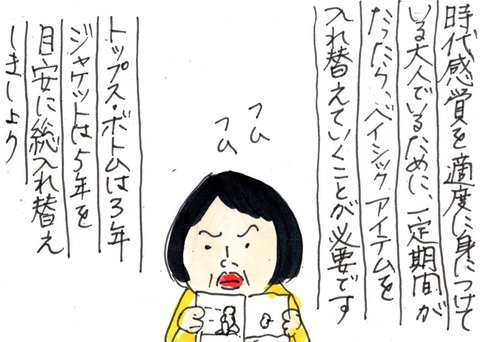 時代感覚を適度に身につけて
いる大人でいるために、一定期間が
たったら、ベイシックアイテムを
入れ替えていくことが必要です
フム
フム
トップス・ボトムは3年
ジャケットは5年を
目安に総入れ替え
しましょう